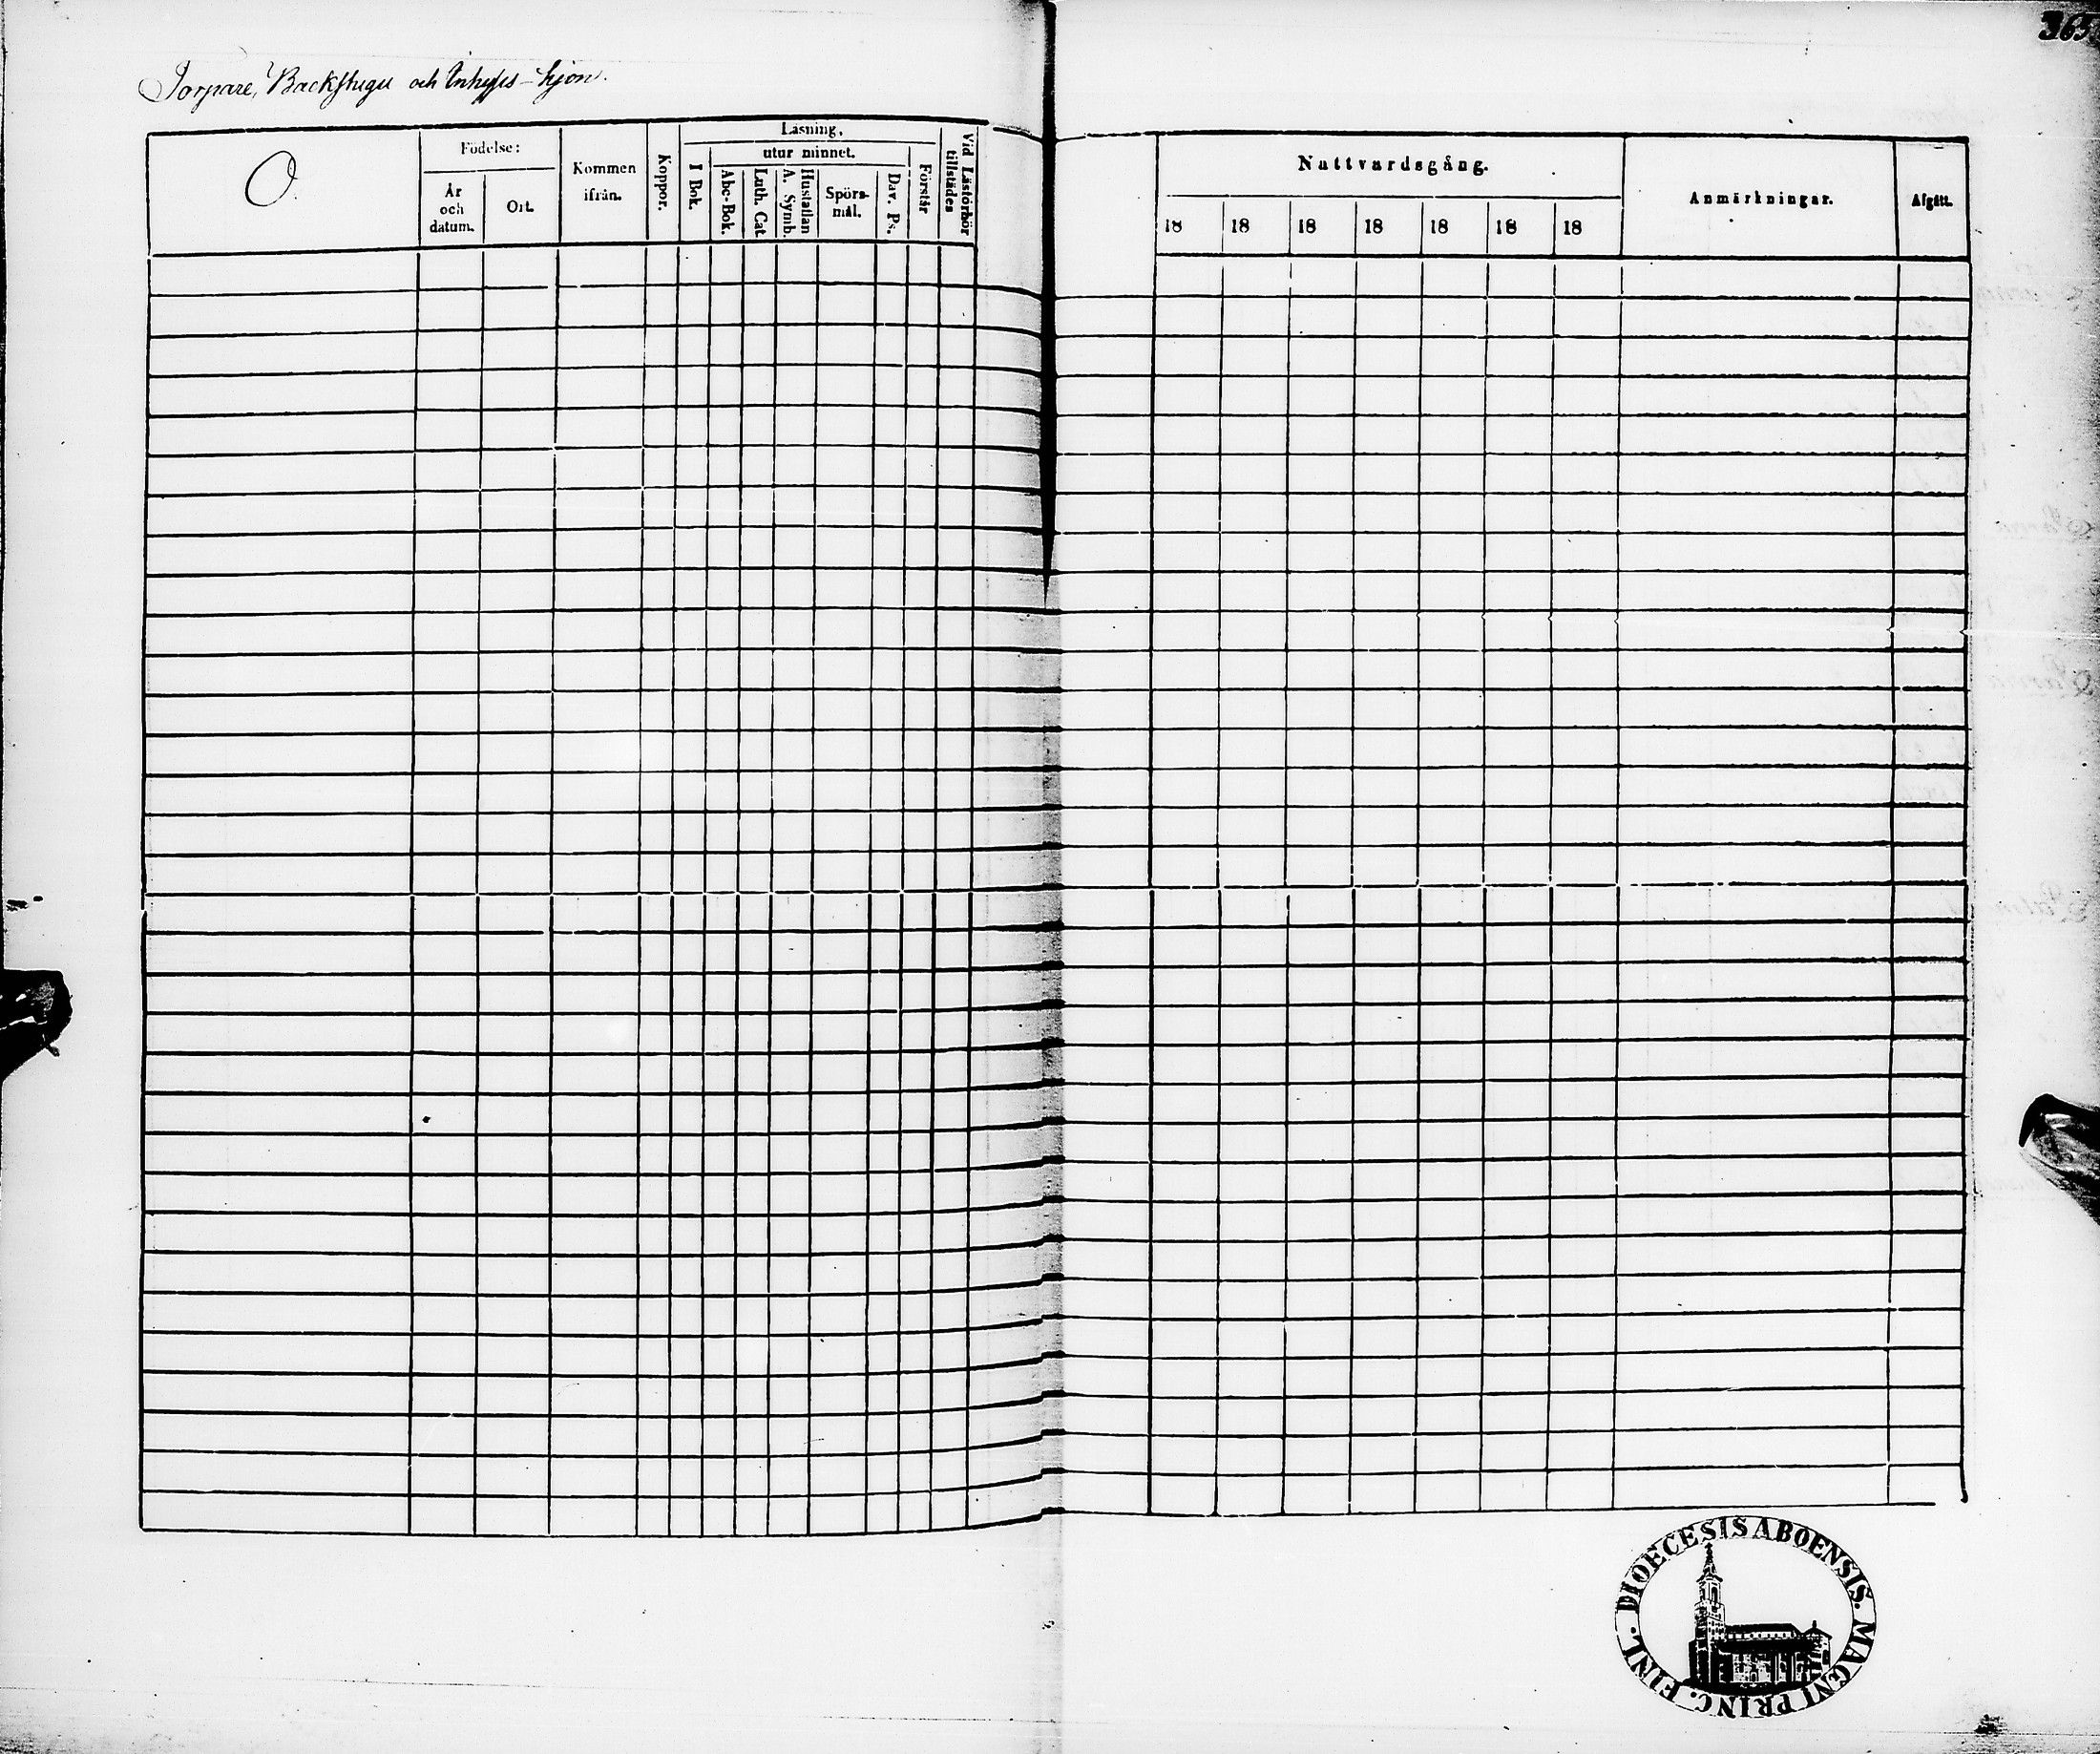 365
Torpare, Backstugu och Inhyses-hjon.
O.
Födelse:
År och datum.
Ort.
Kommen ifrån.
Koppor.
Läsning,
utur minnet.
I Bok.
Abc-Bok.
Luth. Cat.
A. Symb. Hustaflan
Spörsmål.
Dav. Ps.
Förstår
Vid Läsförhör tillstädes
Nattvardsgång.
18 18 18 18 18 18 18
Anmärkningar.
Afgått.
DIOECESIS ABOENSIS. MAGNI PRINC. FINL.